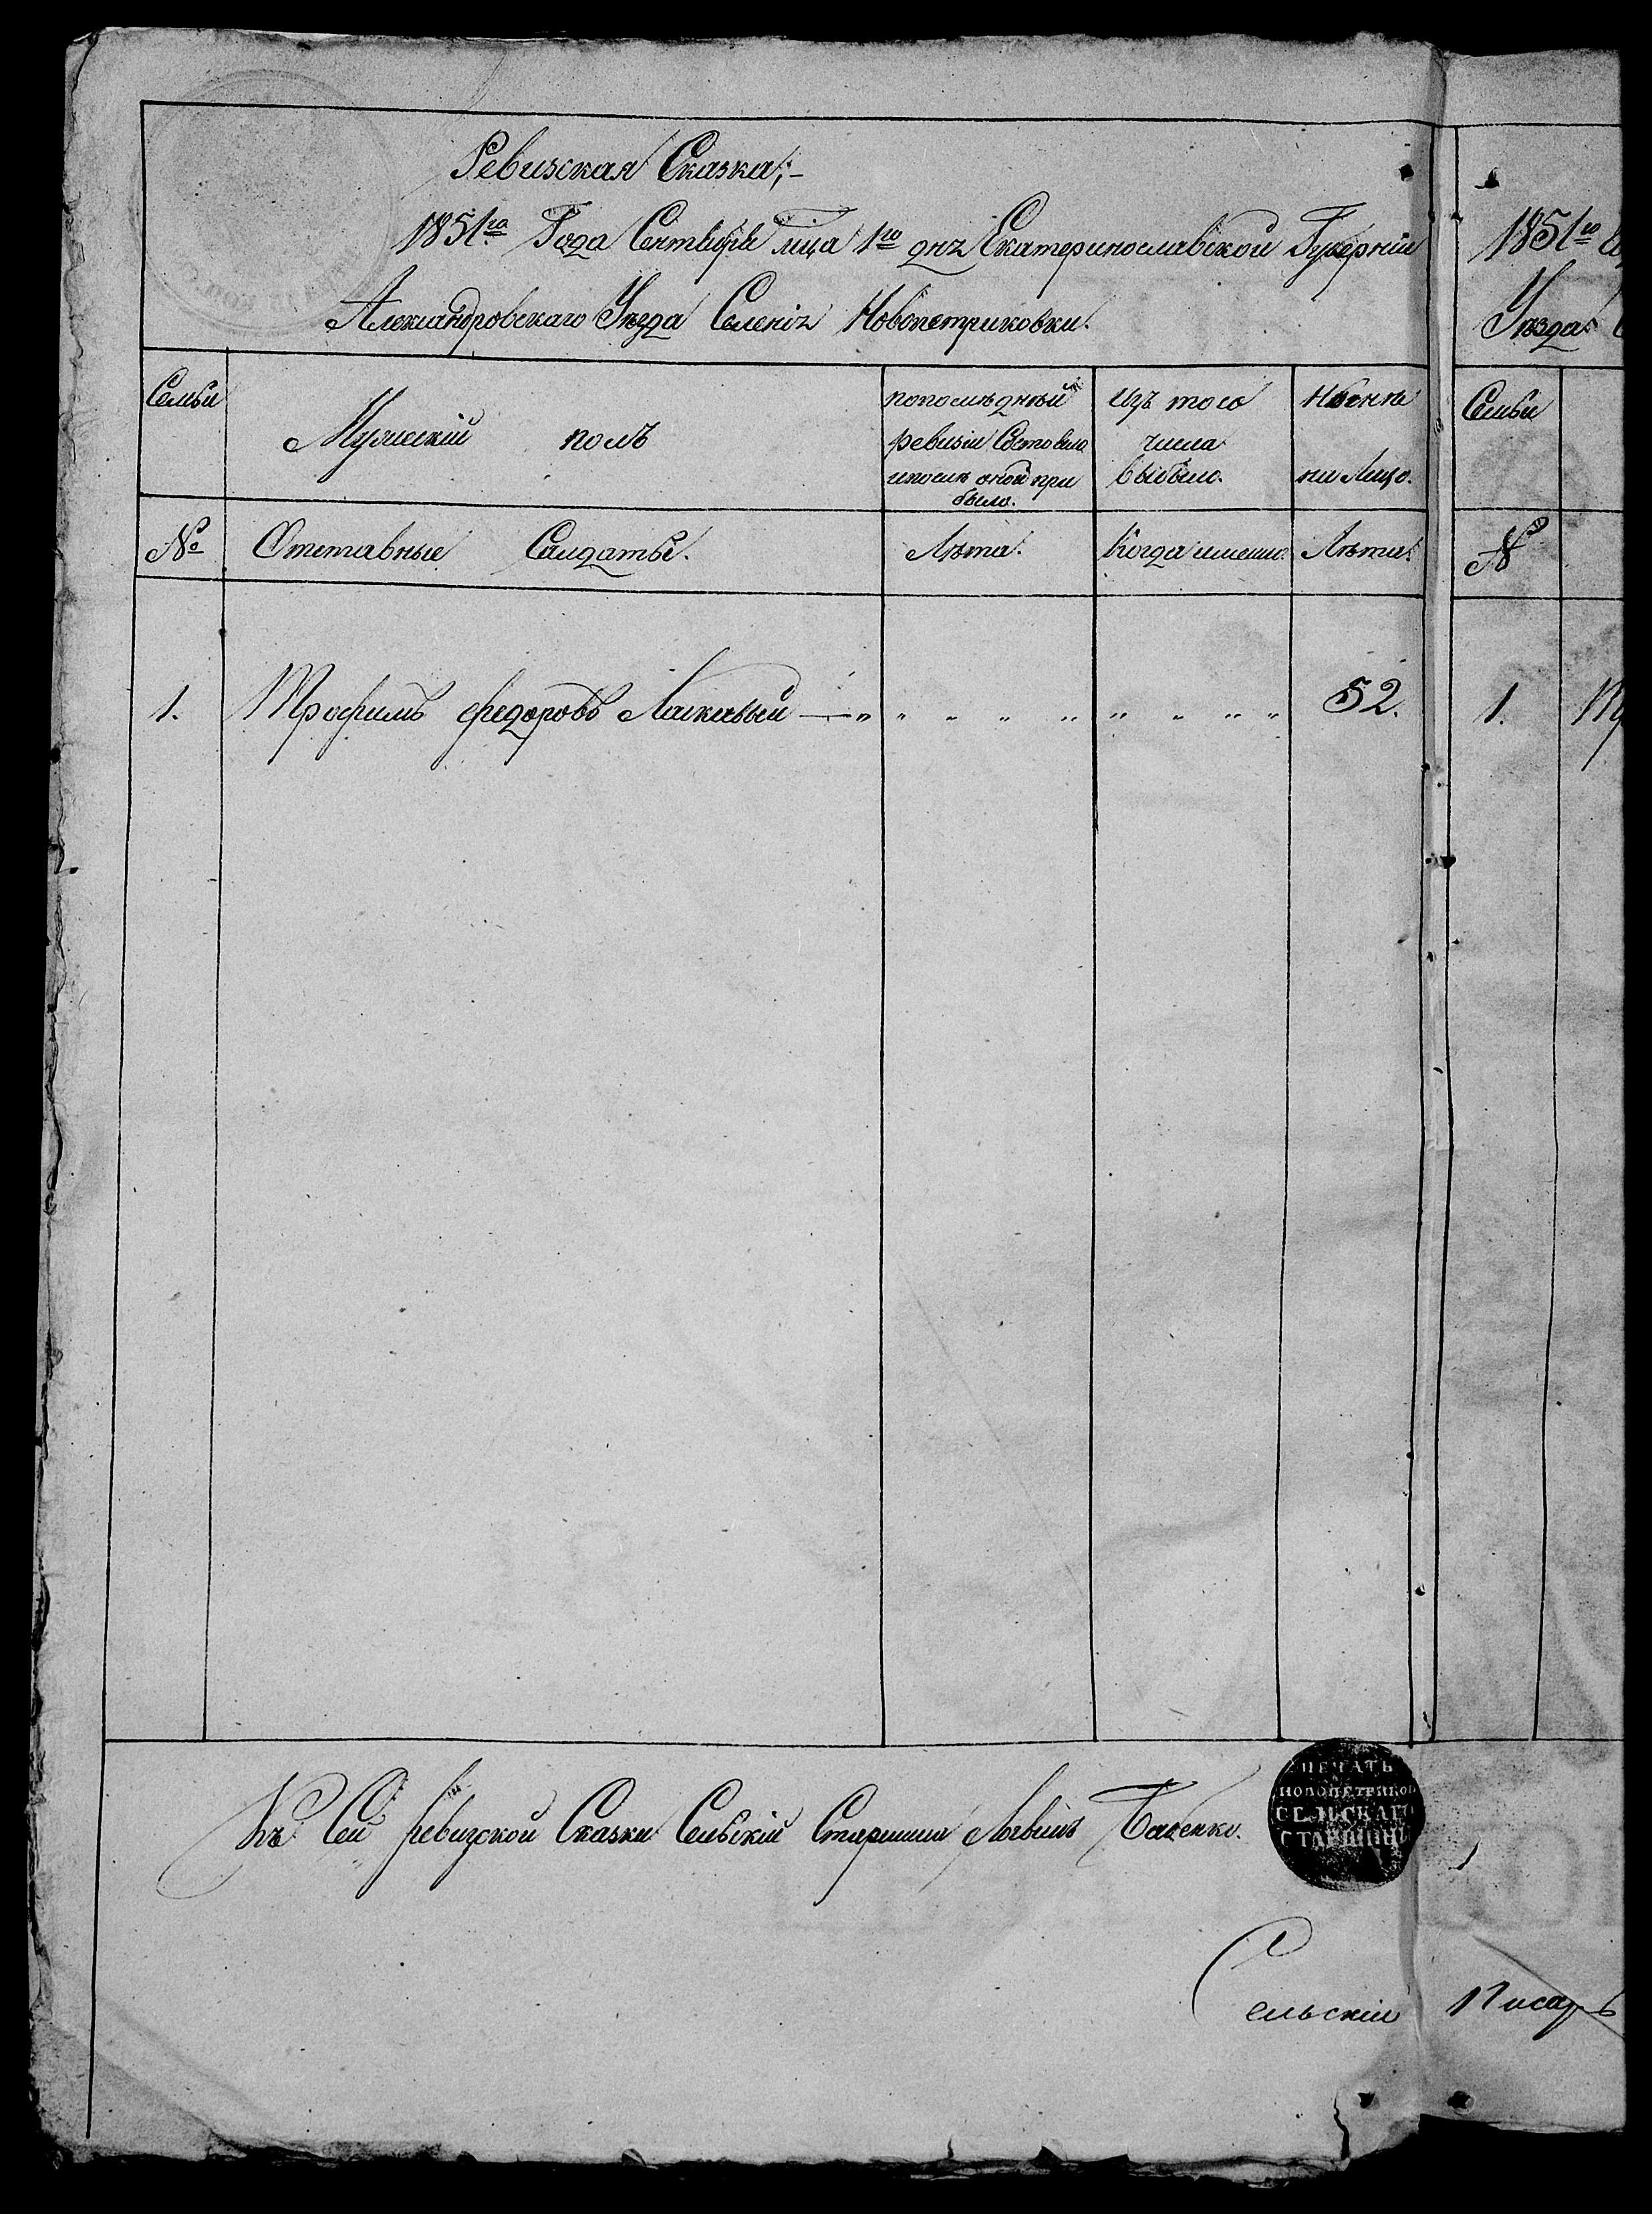 Ревизская Сказка;-
1851го Года Сентября мца 1го дня Екатеринославской Губерніи
Александровскаго Уѣзда Селенія Новопетриковки.
Семьи
Мужескій полъ
попослѣдней
ревизіи Состояло
ипослѣ оной при
было.
Изъ того
числа
выбыло.
Нынѣ
на Лицо.
№
Отставные Салдаты.
Лѣта.
Когда именно.
Лѣта.
1.
Трофимъ Федоровъ Ласкавый — „ „ „ „ „ „ „ „ „
52.
Къ Сей ревизской Сказки Сельскій Старшина Бабенко.
ПЕЧАТЬ
НОВОПЕТРИКОВ
СЕЛЬСКАГО
СТАРШИНЫ
Сельскій Писарь
1851го
Уѣзда
Семьи
№
1.